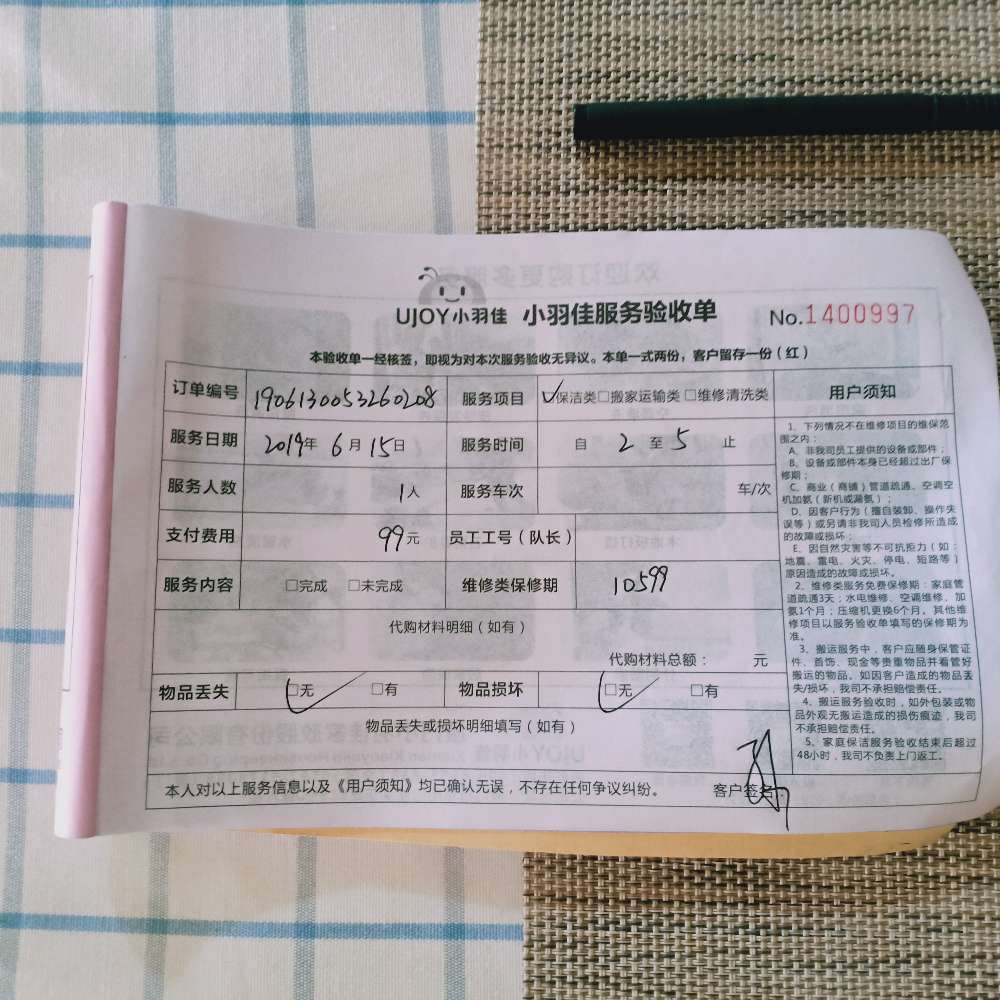 UJOY小羽佳 小羽佳服务验收单 No.1400997
本验收单一经核签，即视为对本次服务验收无异议。本单一式两份，客户留存一份（红）
订单编号 1906130053260208 服务项目 ☑保洁类□搬家运输类□维修清洗类
服务日期 2019年 6月15日 服务时间 自 2 至 5 止
服务人数 1人 服务车次 车/次
支付费用 99元 员工工号（队长）
服务内容 □完成 □未完成 维修类保修期 10599
代购材料明细（如有）
代购材料总额： 元
物品丢失 ☑无 □有 物品损坏 ☑无 □有
物品丢失或损坏明细填写（如有）
本人对以上服务信息以及《用户须知》均已确认无误，不存在任何争议纠纷。 客户签名：
用户须知
1、下列情况不在维修项目的维保范
围之内：
A、非我司员工提供的设备或部件；
B、设备或部件本身已经超过出厂保
修期；
C、商业（商铺）管道疏通、空调空
机加氨（新机或漏氨）；
D、因客户行为（擅自装卸、操作失
误等）或另请非我司人员检修所造成
的故障或损坏；
E、因自然灾害等不可抗拒力（如：
地震、雷电、火灾、停电、短路等）
原因造成的故障或损坏。
2、维修类服务免费保修期：家庭管
道疏通3天；水电维修、空调维修、加
氨1个月；压缩机更换6个月。其他维
修项目以服务验收单填写的保修期为
准。
3、搬运服务中，客户应随身保管证
件、首饰、现金等贵重物品并看管好
搬运的物品。如因客户造成的物品丢
失/损坏，我司不承担赔偿责任。
4、搬运服务验收时，如外包装或物
品外观无搬运造成的损伤痕迹，我司
不承担赔偿责任。
5、家庭保洁服务验收结束后超过
48小时，我司不负责上门返工。